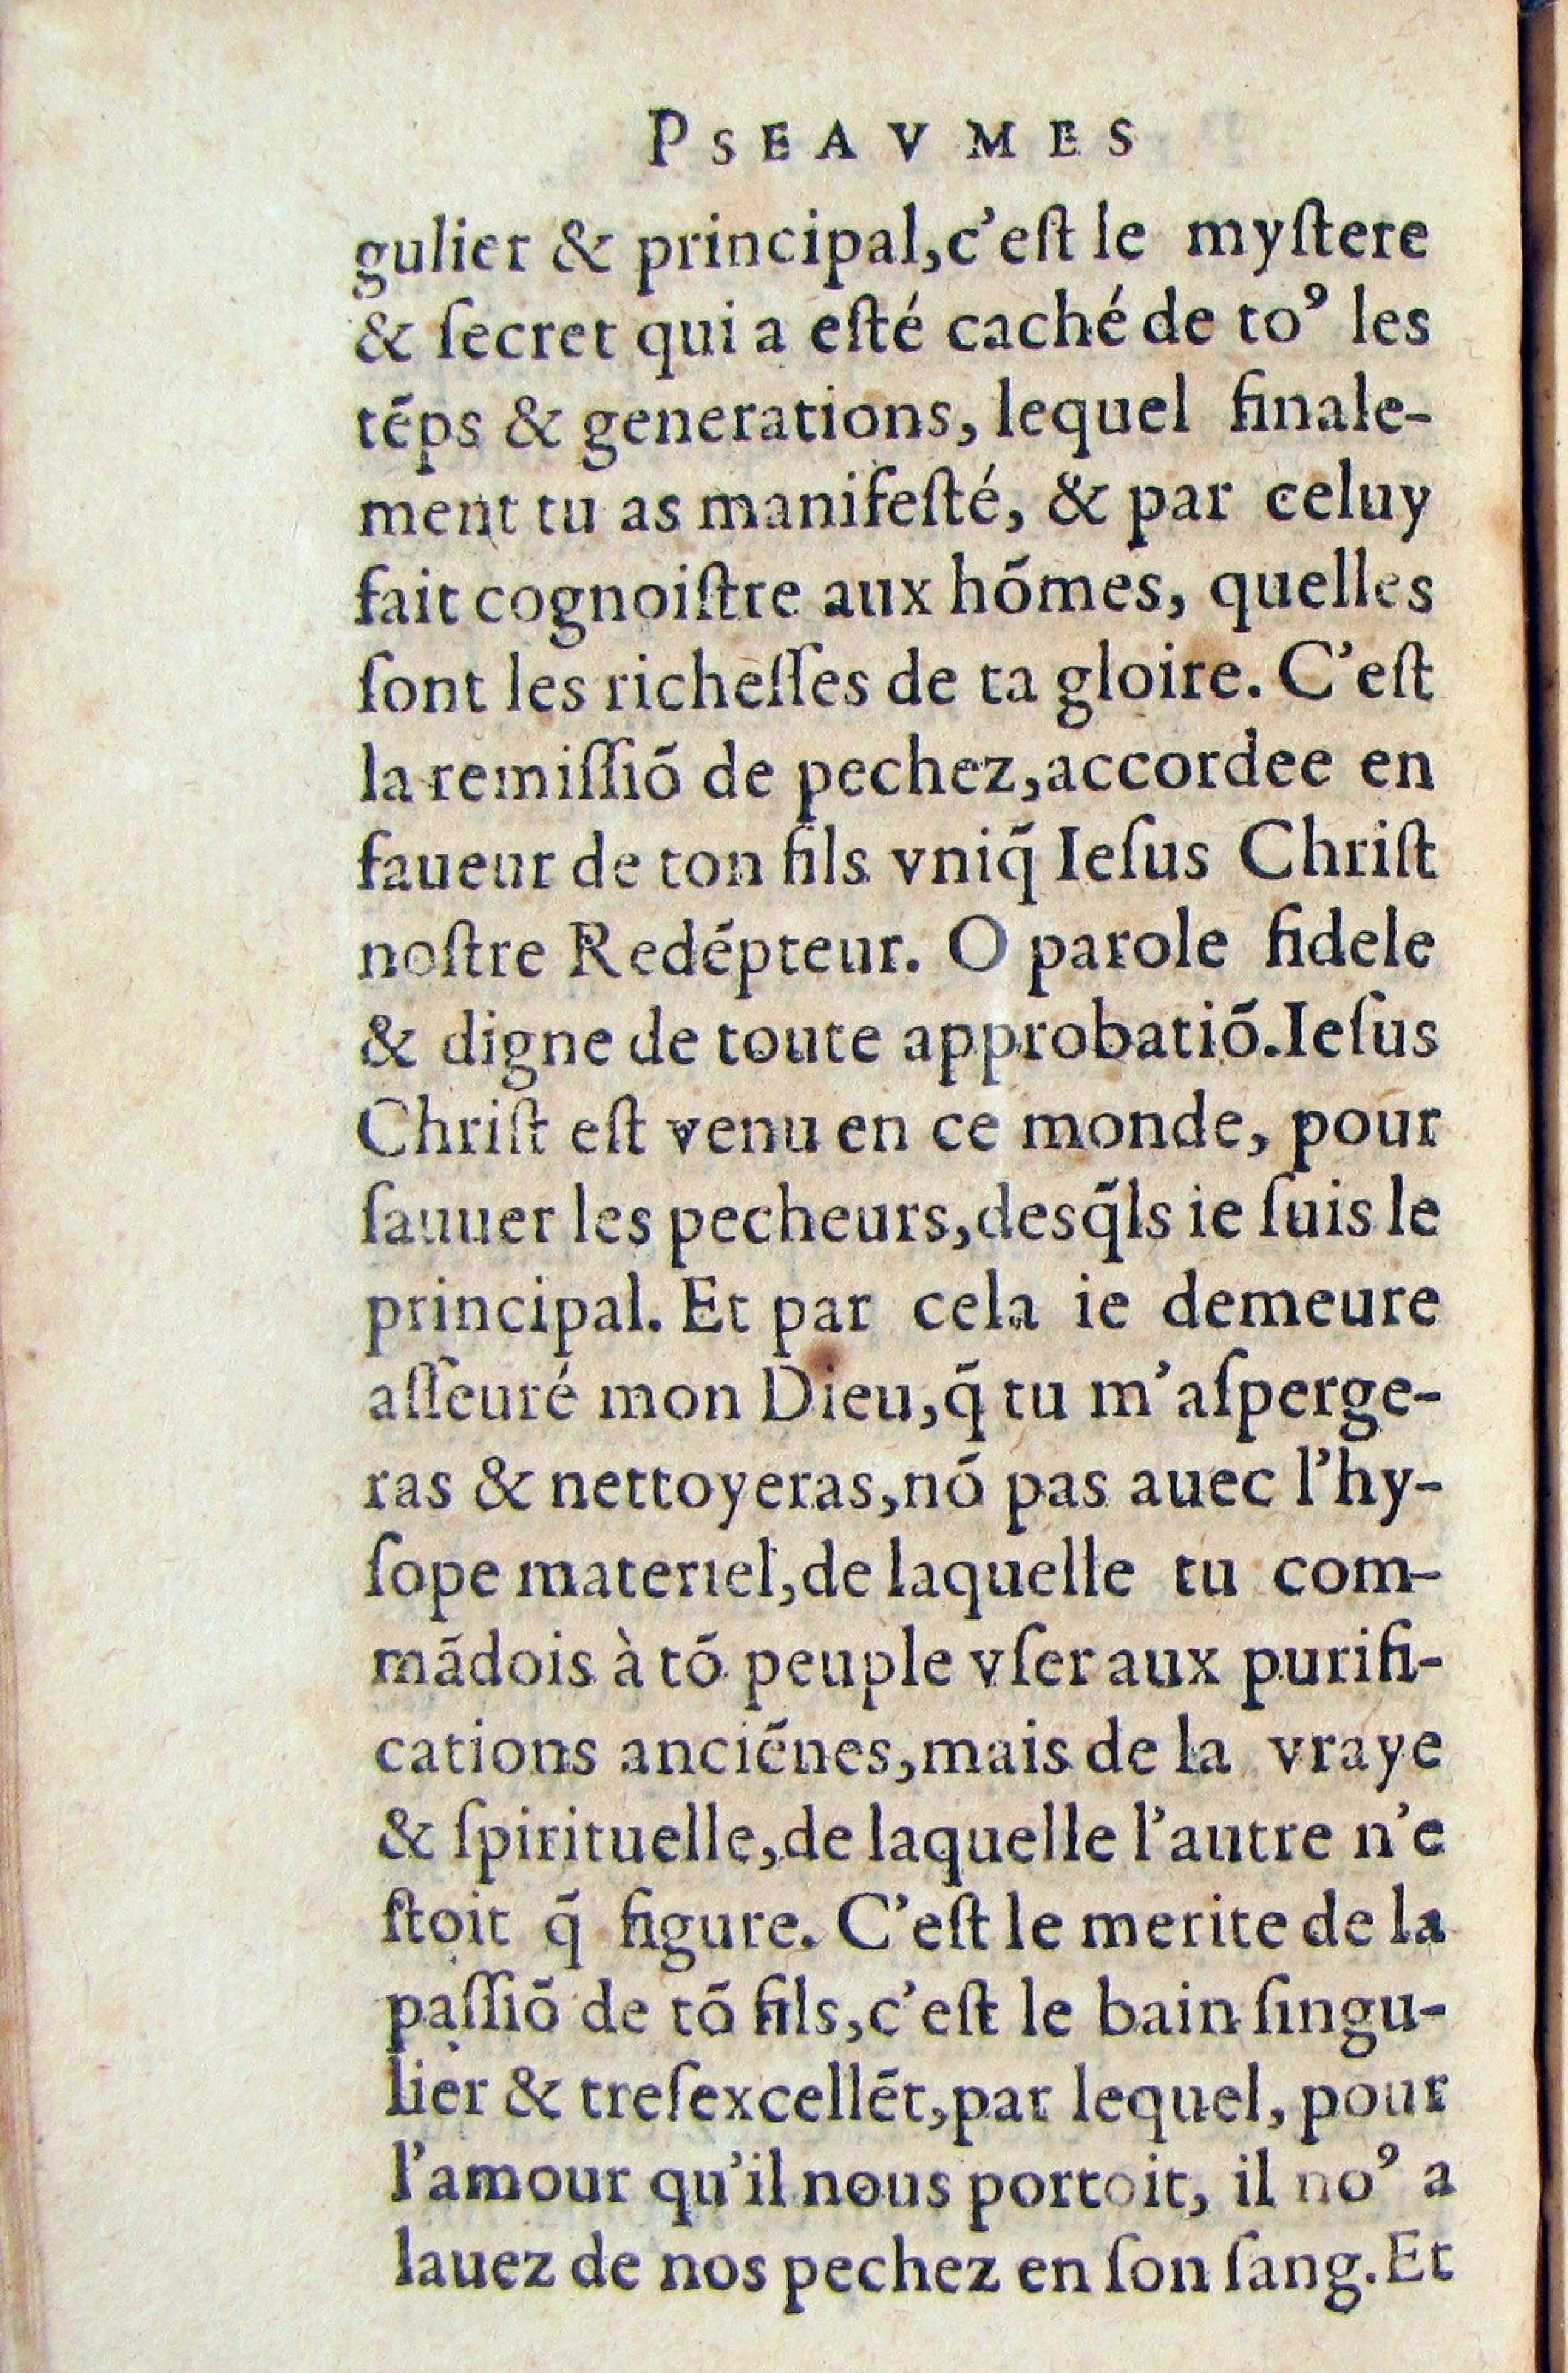 PSEAVMES
gulier & principal,c'eſt le myſtere
& ſecret qui a eſté caché de toꝰ les
tẽps & generations, lequel finale-
ment tu as manifeſté, & par celuy
fait cognoiſtre aux hõmes, quelles
ſont les richeſſes de ta gloire. C'eſt
la remiſſiõ de pechez,accordee en
faueur de ton fils vniq̃ Ieſus Chriſt
noſtre Redẽpteur. O parole fidele
& digne de toute approbatiõ.Ieſus
Chriſt eſt venu en ce monde, pour
ſauuer les pecheurs,desq̃ls ie ſuis le
principal. Et par cela ie demeure
aſſeuré mon Dieu,q̃ tu m'aſperge-
ras & nettoyeras,nõ pas auec l'hy-
ſope materiel,de laquelle tu com-
mãdois à tõ peuple vſer aux purifi-
cations anciẽnes,mais de la vraye
& ſpirituelle,de laquelle l'autre n'e
ſtoit q̃ figure. C'eſt le merite de la
paſſiõ de tõ fils,c'eſt le bain ſingu-
lier & treſexcellẽt,par lequel, pour
l'amour qu'il nous portoit, il noꝰ a
lauez de nos pechez en ſon ſang.Et